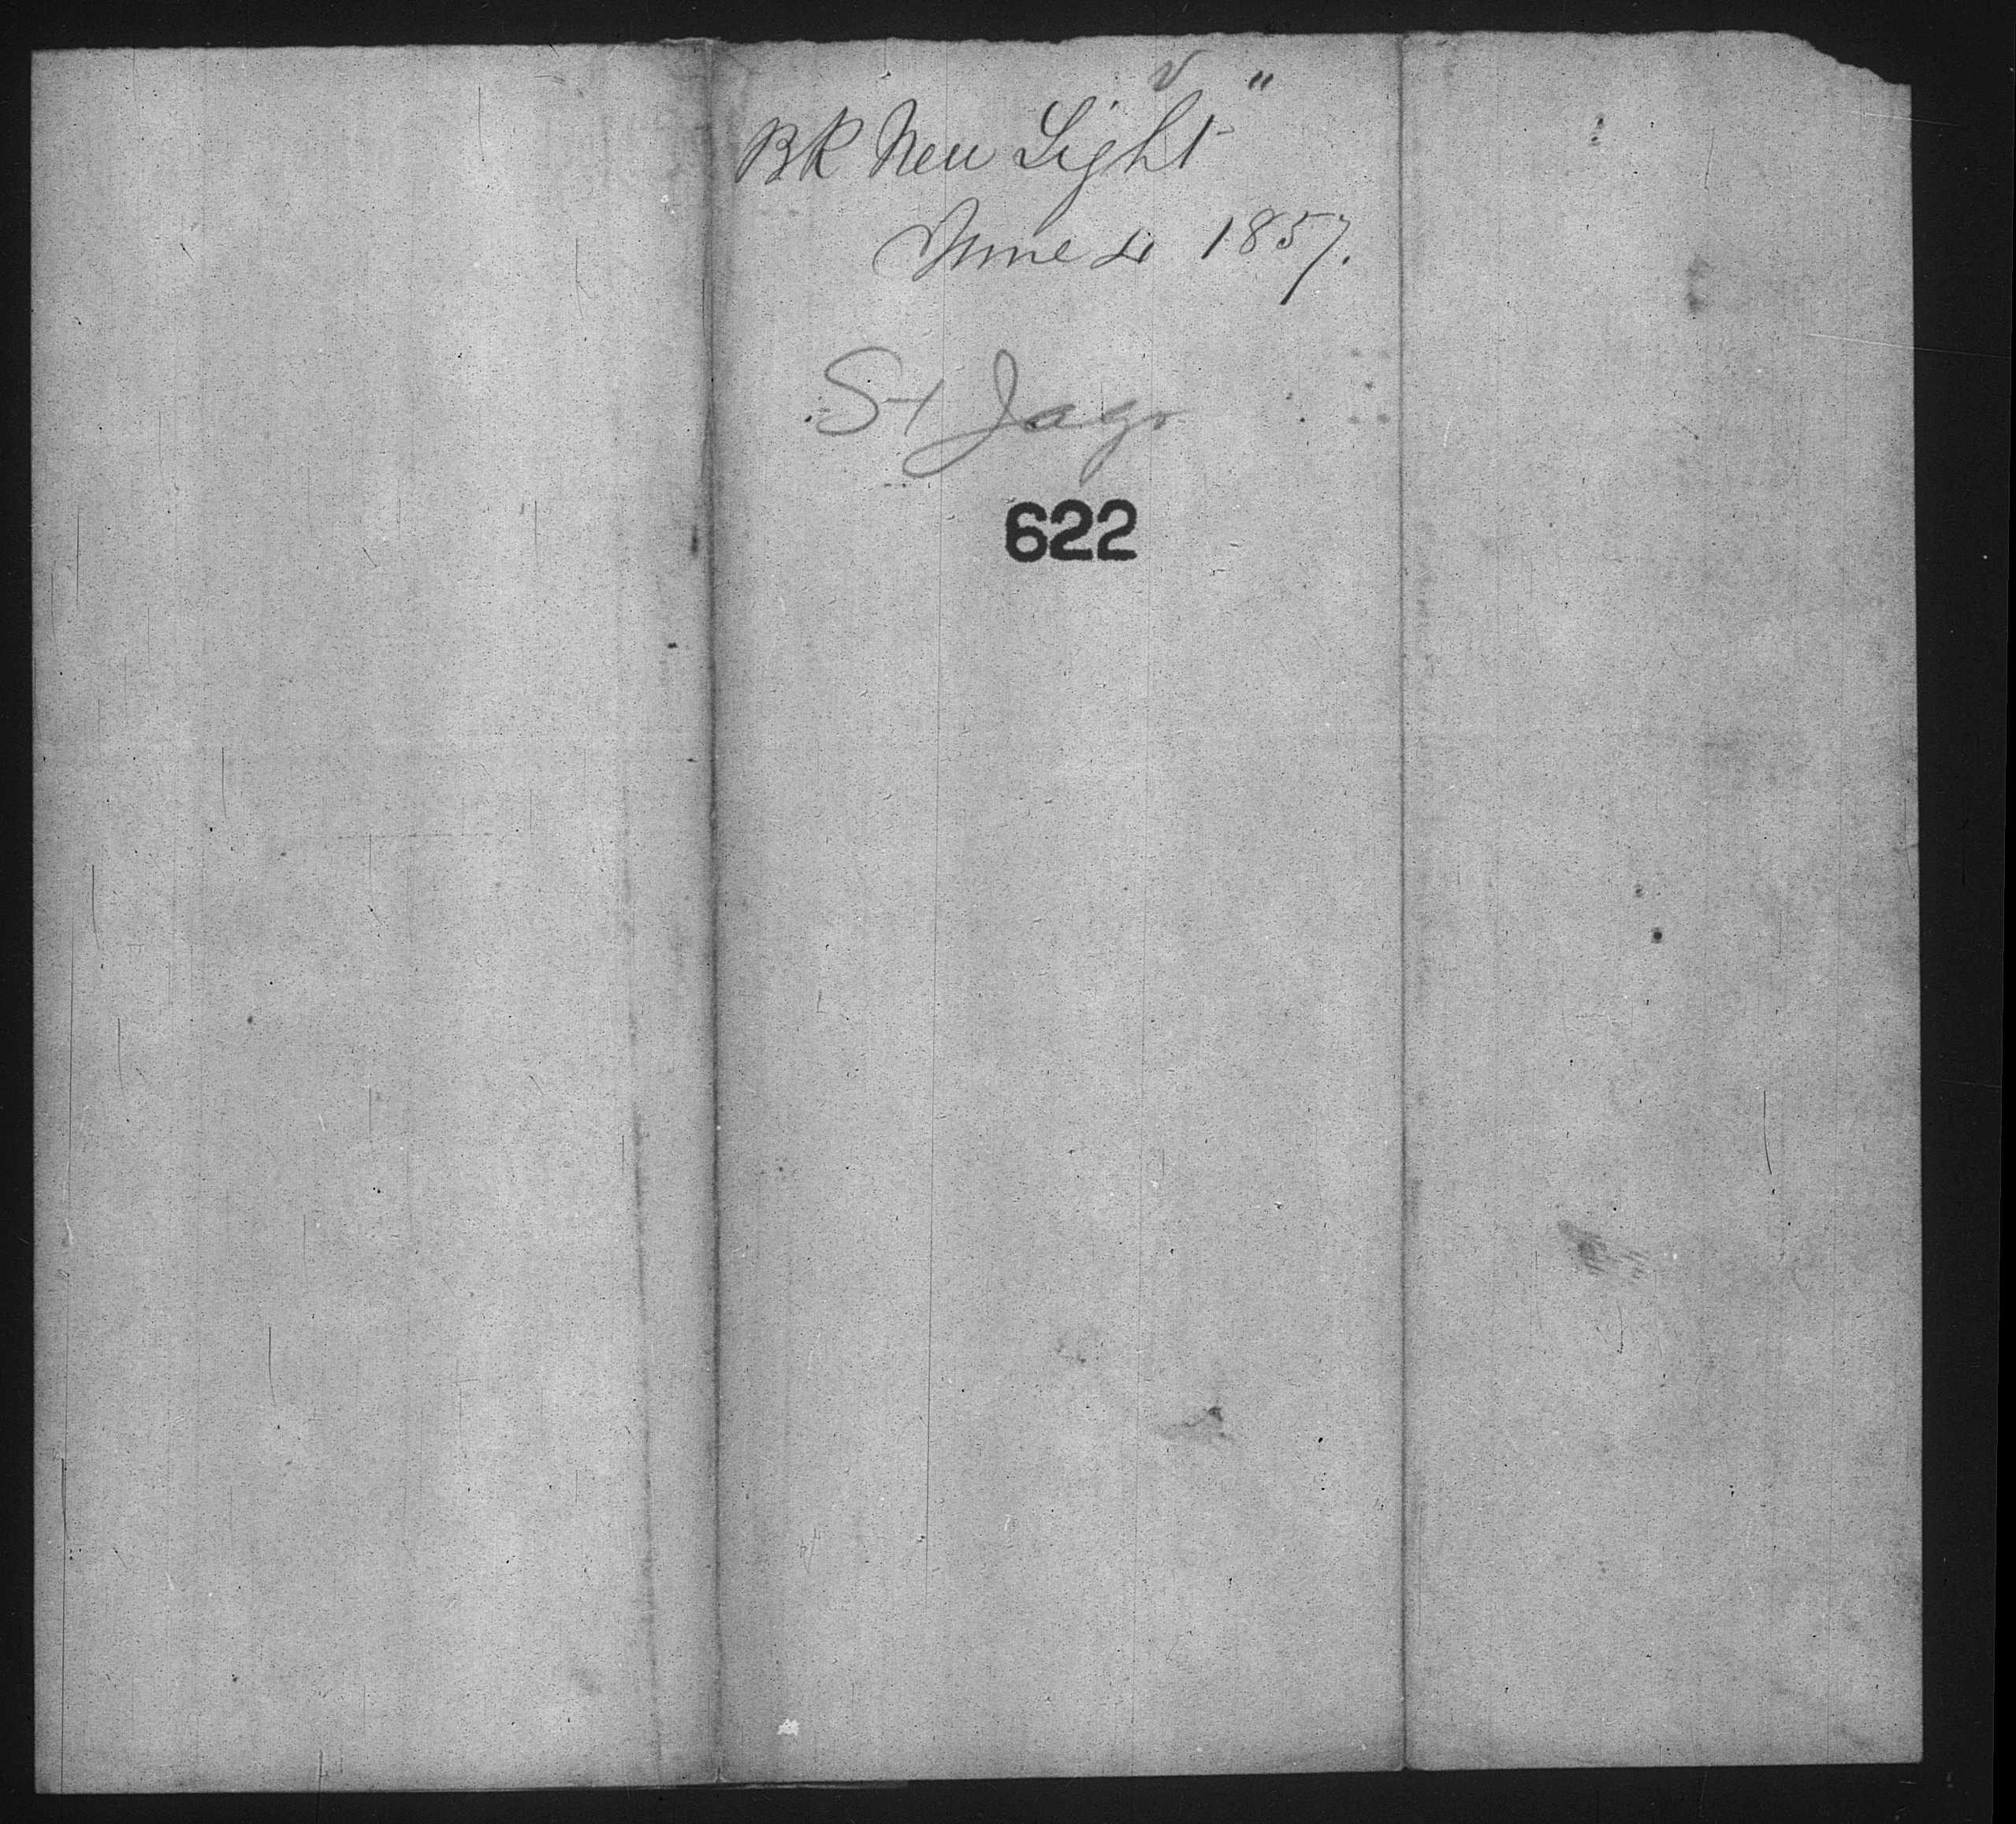 BK New Light"
June 4 1857.
St Jago
622